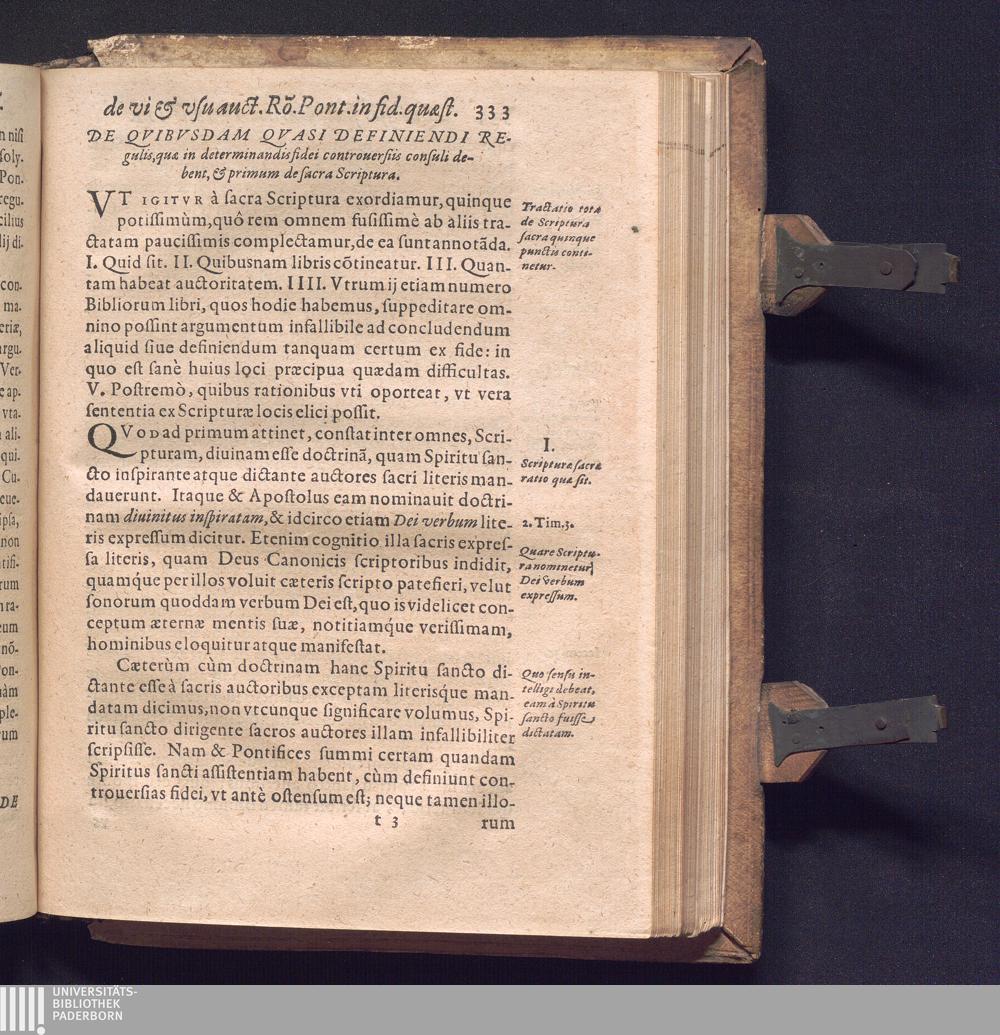 de vi & vſu auct. Rō. Pont. in fid. quæſt. 333
DE QVIBVSDAM QVASI DEFINIENDI RE-
gulis, quæ in determinandis fidei controuerſiis conſuli de-
bent, & primum de ſacra Scriptura.
VT IGITVR à ſacra Scriptura exordiamur, quinque
potiſſimùm, quô rem omnem fuſiſſimè ab aliis tra-
ctatam pauciſſimis complectamur, de ea ſunt annotāda.
I. Quid ſit. II. Quibusnam libris cōtineatur. III. Quan-
tam habeat auctoritatem. IIII. Vtrum ij etiam numero
Bibliorum libri, quos hodie habemus, ſuppeditare om-
nino poſſint argumentum infallibile ad concludendum
aliquid ſiue definiendum tanquam certum ex fide: in
quo eſt ſanè huius loci præcipua quædam difficultas.
V. Poſtremò, quibus rationibus vti oporteat, vt vera
ſententia ex Scripturæ locis elici poſſit.
Tractatio tota
de Scriptura
ſacra quinque
punctis conti-
netur.
QVOD ad primum attinet, conſtat inter omnes, Scri-
pturam, diuinam eſſe doctrinā, quam Spiritu ſan-
cto inſpirante atque dictante auctores ſacri literis man-
dauerunt. Itaque & Apoſtolus eam nominauit doctri-
nam diuinitus inſpiratam, & idcirco etiam Dei verbum lite-
ris expreſſum dicitur. Etenim cognitio illa ſacris expreſ-
ſa literis, quam Deus Canonicis ſcriptoribus indidit,
quamq́ue per illos voluit cæteris ſcripto patefieri, velut
ſonorum quoddam verbum Dei eſt, quo is videlicet con-
ceptum æternæ mentis ſuæ, notitiamq́ue veriſſimam,
hominibus eloquitur atque manifeſtat.
I.
Scripturæ ſacræ
ratio quæ ſit.
2. Tim. 3.
Quare Scriptu-
ra nominetur
Dei verbum
expreſſum.
Cæterùm cùm doctrinam hanc Spiritu ſancto di-
ctante eſſe à ſacris auctoribus exceptam literisque man-
datam dicimus, non vtcunque ſignificare volumus, Spi-
ritu ſancto dirigente ſacros auctores illam infallibiliter
ſcripſiſſe. Nam & Pontifices ſummi certam quandam
Spiritus ſancti aſſiſtentiam habent, cùm definiunt con-
trouerſias fidei, vt antè oſtenſum eſt; neque tamen illo-
Quo ſenſu in-
telligi debeat,
eam à Spiritu
ſancto fuiſſe
dictatam.
t 3 rum
n niſi
ſoly.
Pon.
regu.
cilius
lij di-
con.
ma.
eriæ,
argu.
Ver-
e ap.
vta.
ali.
qui.
Cu-
eue-
ipſa,
non
tifi-
rum
ra-
eum
nō-
on-
àm
ple-
um
DE
UNIVERSITÄTS-
BIBLIOTHEK
PADERBORN